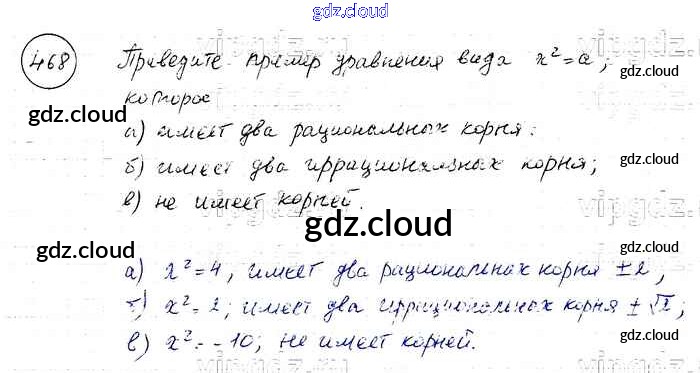 gdz.cloud
468 Приведите пример уравнения вида x² = a,
gdz.cloud
которое
gdz.cloud
а) имеет два рациональных корня:
б) имеет два иррациональных корня;
gdz.cloud
в) не имеет корней.
gdz.cloud
gdz.cloud
gdz.cloud
а) x² = 4, имеет два рациональных корня ± 2,
б) x² = 2; имеет два иррациональных корня ± √2;
gdz.cloud
gdz.cloud
в) x² = -10; не имеет корней.